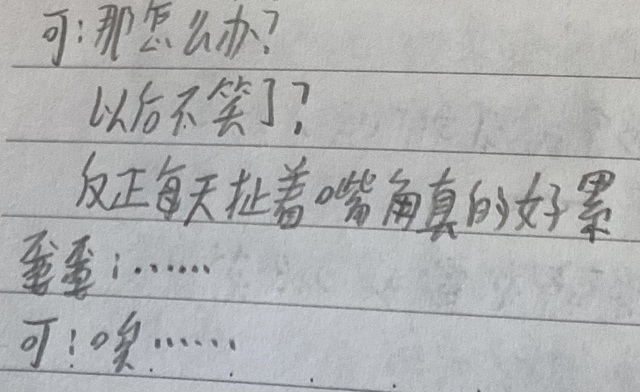 可:那怎么办?
以后不笑了?
反正每天扯着嘴角真的好累
蛋蛋:……
可:唉……